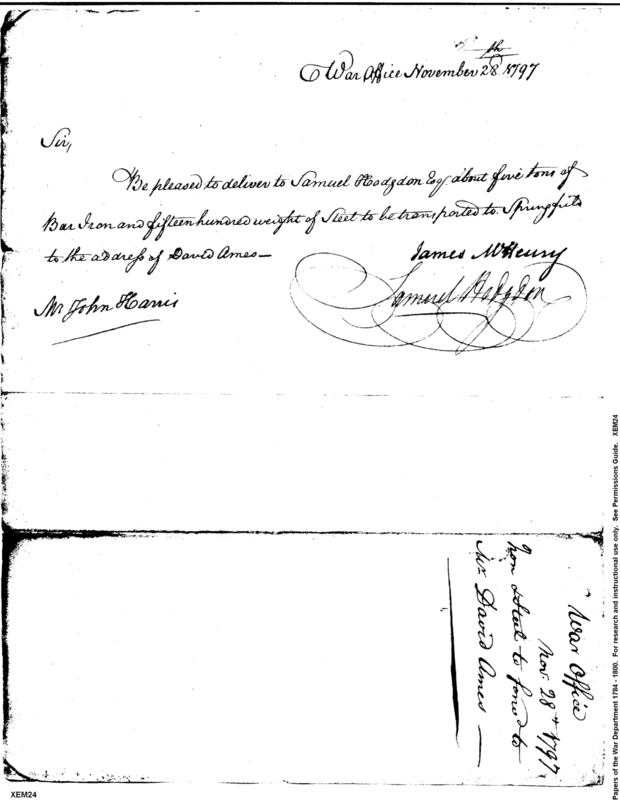 War Office November 28th 1797
Sir,
Be pleased to deliver to Samuel Hodgdon Esq. about five tons of
Bar Iron and fifteen hundred weight of Steel to be transported to Springfield
to the address of David Ames—
James McHenry
Samuel Hodgdon
Mr John Harris
War Office
Nov. 28th 1797
Iron & Steel to forwd to
Mr David Ames —
Papers of the War Department 1784 - 1800. For research and instructional use only. See Permissions Guide. XEM24
XEM24